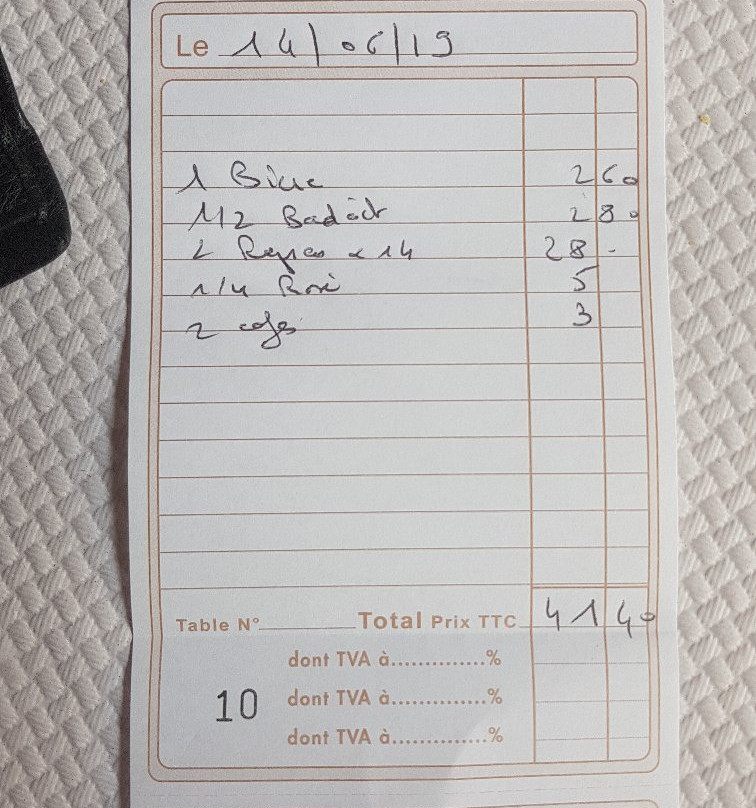 Le 14/06/19
1 Bière 2 60
1/2 Badoit 2 80
2 Repas x 14 28 -
1/4 Rosé 5
2 cafés 3
Table N° Total Prix TTC 41 40
dont TVA à..............%
10 dont TVA à..............%
dont TVA à..............%